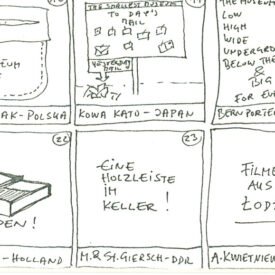 THE SMALLEST MUSEUM
TO DAY'S
MAIL
YESTERDAY
MAIL
UM
AK-POLSKA
KOWA KATO-JAPAN
THE MUSEUM
LOW
HIGH
WIDE
UNDERGROU
BELOW THE
&
BIG
FOR EV
BERN PORTER
22
DEN!
-HOLLAND
23
EINE
HOLZLEISTE
IM
KELLER!
M.R.ST.GIERSCH-DDR
FILME
AUS
ŁODZ
A.KWIETNIEW